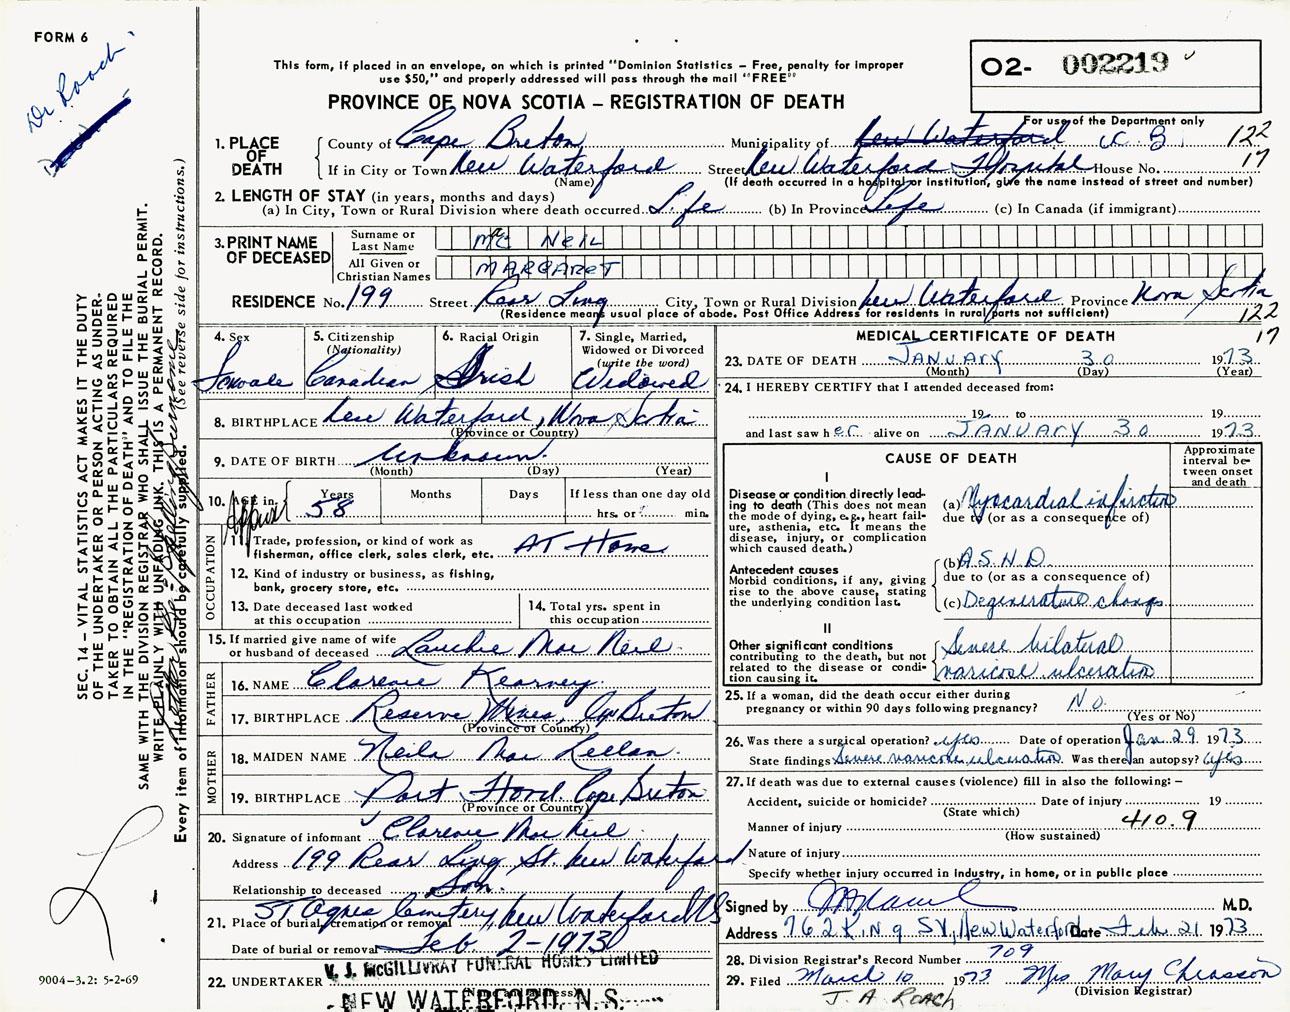 FORM 6
Dr Roach
This form, if placed in an envelope, on which is printed "Dominion Statistics – Free, penalty for improper
use $50," and properly addressed will pass through the mail "FREE"
O2- 002219
PROVINCE OF NOVA SCOTIA – REGISTRATION OF DEATH
For use of the Department only
1. PLACE OF DEATH
County of Cape Breton Municipality of New Waterford C B 122
If in City or Town New Waterford Street New Waterford Hospital House No. 17
(Name) (If death occurred in a hospital or institution, give the name instead of street and number)
2. LENGTH OF STAY (in years, months and days)
(a) In City, Town or Rural Division where death occurred Life (b) In Province Life (c) In Canada (if immigrant)
3. PRINT NAME OF DECEASED
Surname or Last Name Mc NEIL
All Given or Christian Names MARGARET
RESIDENCE No. 199 Street Rear Ling City, Town or Rural Division New Waterford Province Nova Scotia
(Residence means usual place of abode. Post Office Address for residents in rural parts not sufficient) 122
17
4. Sex Female
5. Citizenship (Nationality) Canadian
6. Racial Origin Irish
7. Single, Married, Widowed or Divorced (write the word) Widowed
8. BIRTHPLACE New Waterford, Nova Scotia
(Province or Country)
9. DATE OF BIRTH Unknown
(Month) (Day) (Year)
10. AGE in Years 58 Months Days If less than one day old hrs. or min.
OCCUPATION
11. Trade, profession, or kind of work as fisherman, office clerk, sales clerk, etc. AT Home
12. Kind of industry or business, as fishing, bank, grocery store, etc.
13. Date deceased last worked at this occupation
14. Total yrs. spent in this occupation
15. If married give name of wife or husband of deceased Lauchie Mac Neil
FATHER
16. NAME Clarence Kearney
17. BIRTHPLACE Reserve Mines, Cape Breton
(Province or Country)
MOTHER
18. MAIDEN NAME Neila Mac Lellan
19. BIRTHPLACE Port Hood Cape Breton
(Province or Country)
20. Signature of informant Clarence Mac Neil
Address 199 Rear Ling St. New Waterford
Relationship to deceased Son.
21. Place of burial, cremation or removal St Agnes Cemetery, New Waterford NS
Date of burial or removal Feb 2-1973
22. UNDERTAKER V. J. McGILLIVRAY FUNERAL HOMES LIMITED
NEW WATERFORD, N.S.
MEDICAL CERTIFICATE OF DEATH
23. DATE OF DEATH JANUARY 30 1973
(Month) (Day) (Year)
24. I HEREBY CERTIFY that I attended deceased from:
19 to 19
and last saw her alive on JANUARY 30 1973
CAUSE OF DEATH
Approximate interval between onset and death
I
Disease or condition directly leading to death (This does not mean the mode of dying, e.g., heart failure, asthenia, etc. It means the disease, injury, or complication which caused death.)
(a) Myocardial infarction
due to (or as a consequence of)
Antecedent causes
Morbid conditions, if any, giving rise to the above cause, stating the underlying condition last.
(b) A.S.H.D.
due to (or as a consequence of)
(c) Degenerative change
II
Other significant conditions contributing to the death, but not related to the disease or condition causing it.
Severe bilateral
varicose ulceration
25. If a woman, did the death occur either during pregnancy or within 90 days following pregnancy? No.
(Yes or No)
26. Was there a surgical operation? yes Date of operation Jan 29 1973
State findings Severe varicose ulceration Was there an autopsy? yes
27. If death was due to external causes (violence) fill in also the following: –
Accident, suicide or homicide? Date of injury 19
(State which)
Manner of injury 410.9
(How sustained)
Nature of injury
Specify whether injury occurred in industry, in home, or in public place
Signed by M.D.
Address 762 King St, New Waterford Date Feb. 21 1973
28. Division Registrar's Record Number 709
29. Filed March 10 1973 Mrs Mary Chiasson
(Division Registrar)
J. A ROACH
SEC. 14 – VITAL STATISTICS ACT MAKES IT THE DUTY
OF THE UNDERTAKER OR PERSON ACTING AS UNDER-
TAKER TO OBTAIN ALL THE PARTICULARS REQUIRED
IN THE "REGISTRATION OF DEATH" AND TO FILE THE
SAME WITH THE DIVISION REGISTRAR WHO SHALL ISSUE THE BURIAL PERMIT.
WRITE PLAINLY WITH UNFADING INK. THIS IS A PERMANENT RECORD.
Every item of information should be carefully supplied. (See reverse side for instructions.)
9004-3.2: 5-2-69